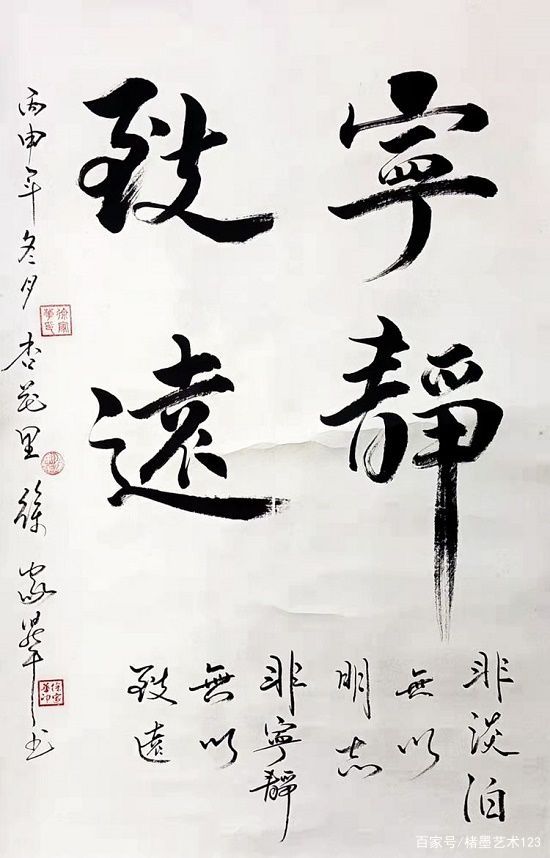 寧靜
致遠
非淡泊
無以
明志
非寧靜
無以
致遠
丙申年冬月杏花里徐家书
百家号/楮墨艺术123